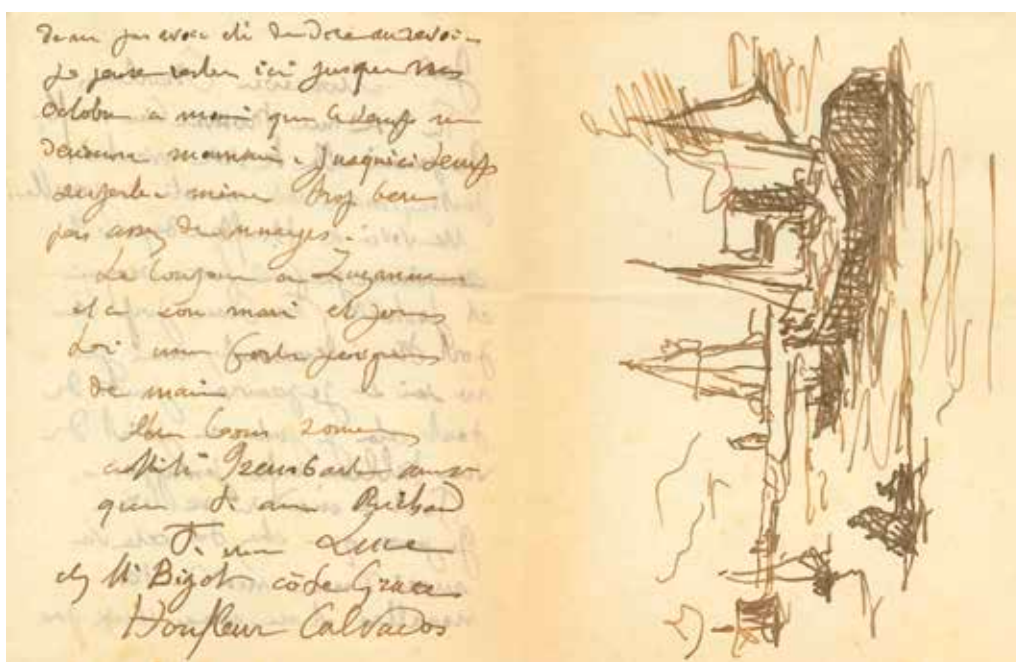 pas avoir été dire au revoir
Je pense rester ici jusque vers
octobre a moins que le temps ne
devienne mauvais. Jusqu'ici temps
superbe même trop beau
pas assez de nuages.
Le bonjour a
et a son mari et pour
toi une forte poignée
de main
bons
ainsi
que Richard
T. ami Luce
chez Mr Bigot côte de Grace
Honfleur Calvados